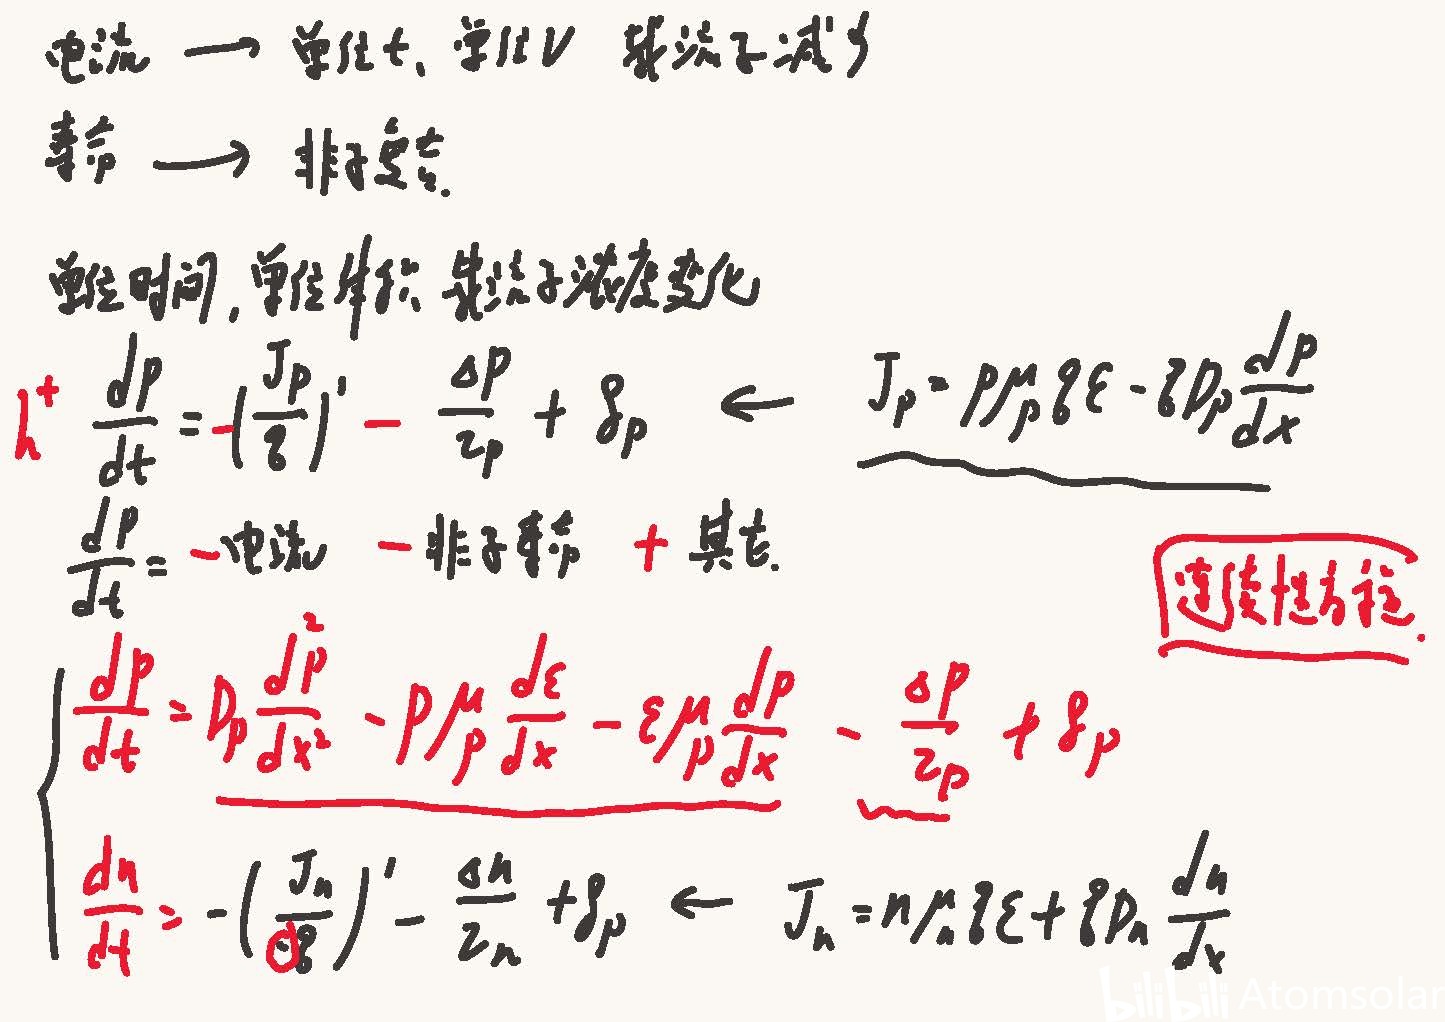 电流 → 单位t、单位V 载流子减少
寿命 → 非子复合.
单位时间,单位体积 载流子浓度变化
h⁺ dp/dt = -(Jp/q)' - Δp/τp + gp ← Jp = pμp qε - qDp dp/dx
dp/dt = -电流 - 非子寿命 + 其它.
连续性方程.
dp/dt = Dp d²p/dx² - pμp dε/dx - εμp dp/dx - Δp/τp + gp
dn/dt = -(Jn/-q)' - Δn/τn + gp ← Jn = nμn qε + qDn dn/dx
bilibili Atomsolar